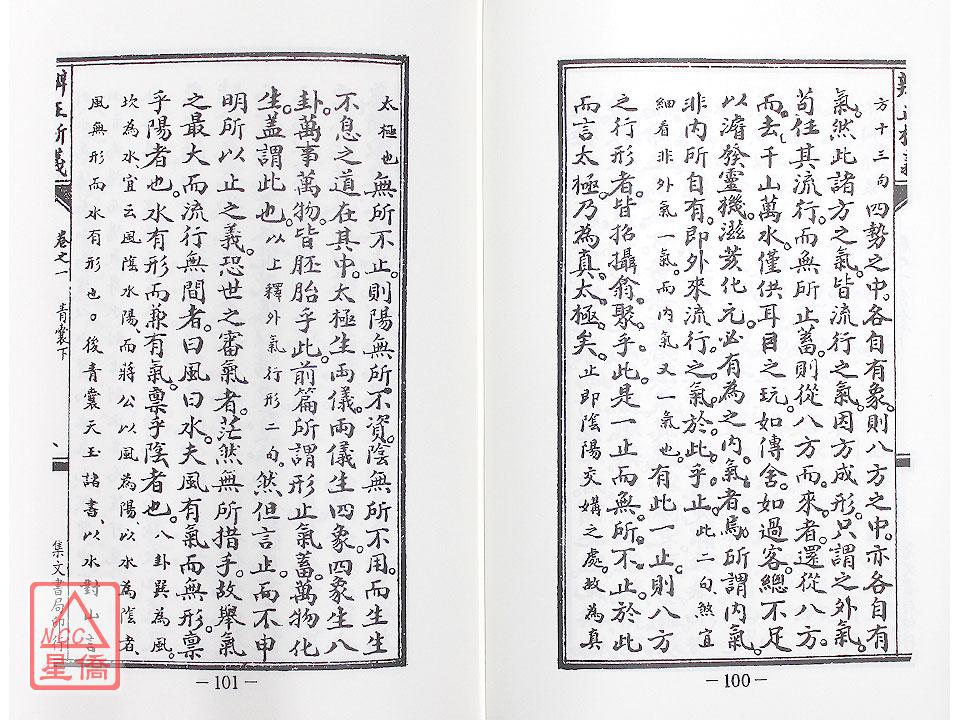 方十三向四勢之中各自有象則八方之中亦各自有
氣然此諸方之氣皆流行之氣因方成形只謂之外氣
苟任其流行而無所止蓄則從八方而來者還從八方
而去千山萬水僅供耳目之玩如傳舍如過客總不足
以濬發靈機滋荄化元必有為之內氣者焉所謂內氣
非內所自有即外來流行之氣於此乎止此二句煞宜
細看非外氣一氣而內氣又一氣也有此一止則八方
之行形者皆招攝翕聚乎此是一止而無所不止於此
而言太極乃為真太極矣止即陰陽交媾之處故為真
—100—
太極也無所不止則陽無所不資陰無所不用而生生
不息之道在其中太極生兩儀兩儀生四象四象生八
卦萬事萬物皆胚胎乎此前篇所謂形止氣蓄萬物化
生蓋謂此也以上釋外氣行形二句然但言止而不申
明所以止之義恐世之審氣者茫然無所措手故舉氣
之最大而流行無間者曰風曰水夫風有氣而無形稟
乎陽者也水有形而兼有氣稟乎陰者也八卦巽為風
坎為水宜云風陰水陽而蔣公以風為陽以水為陰者
風無形而水有形也後青囊天玉諸書以水對山言
卷之一 青囊下
集文書局印行
—101—
NCC
星僑